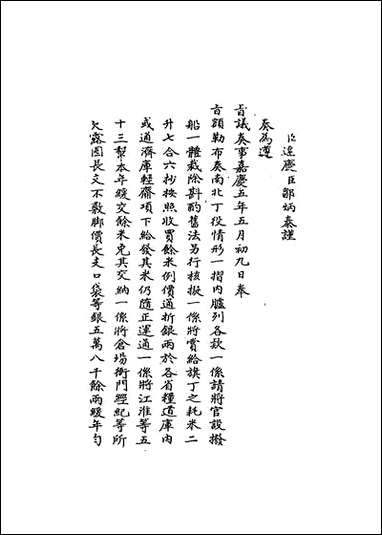 臣達慶臣鄒炳泰謹
奏為遵
旨議奏事嘉慶五年五月初九日奉
旨額勒布奏南北丁役情形一摺內臚列各款一係請將官設撥
船一體裁除斟酌舊法另行核擬一條將賞給旗丁之耗米二
升七合六抄按照收買餘米例價通折銀兩於各省糧道庫內
或通濟庫輕齎項下給發其米仍隨正運通一條將江淮等五
十三幫本年緩交餘米免其交納一條將倉場衙門經紀等所
欠露囤長支不敷腳價長支口袋等銀五萬八千餘兩緩年勻